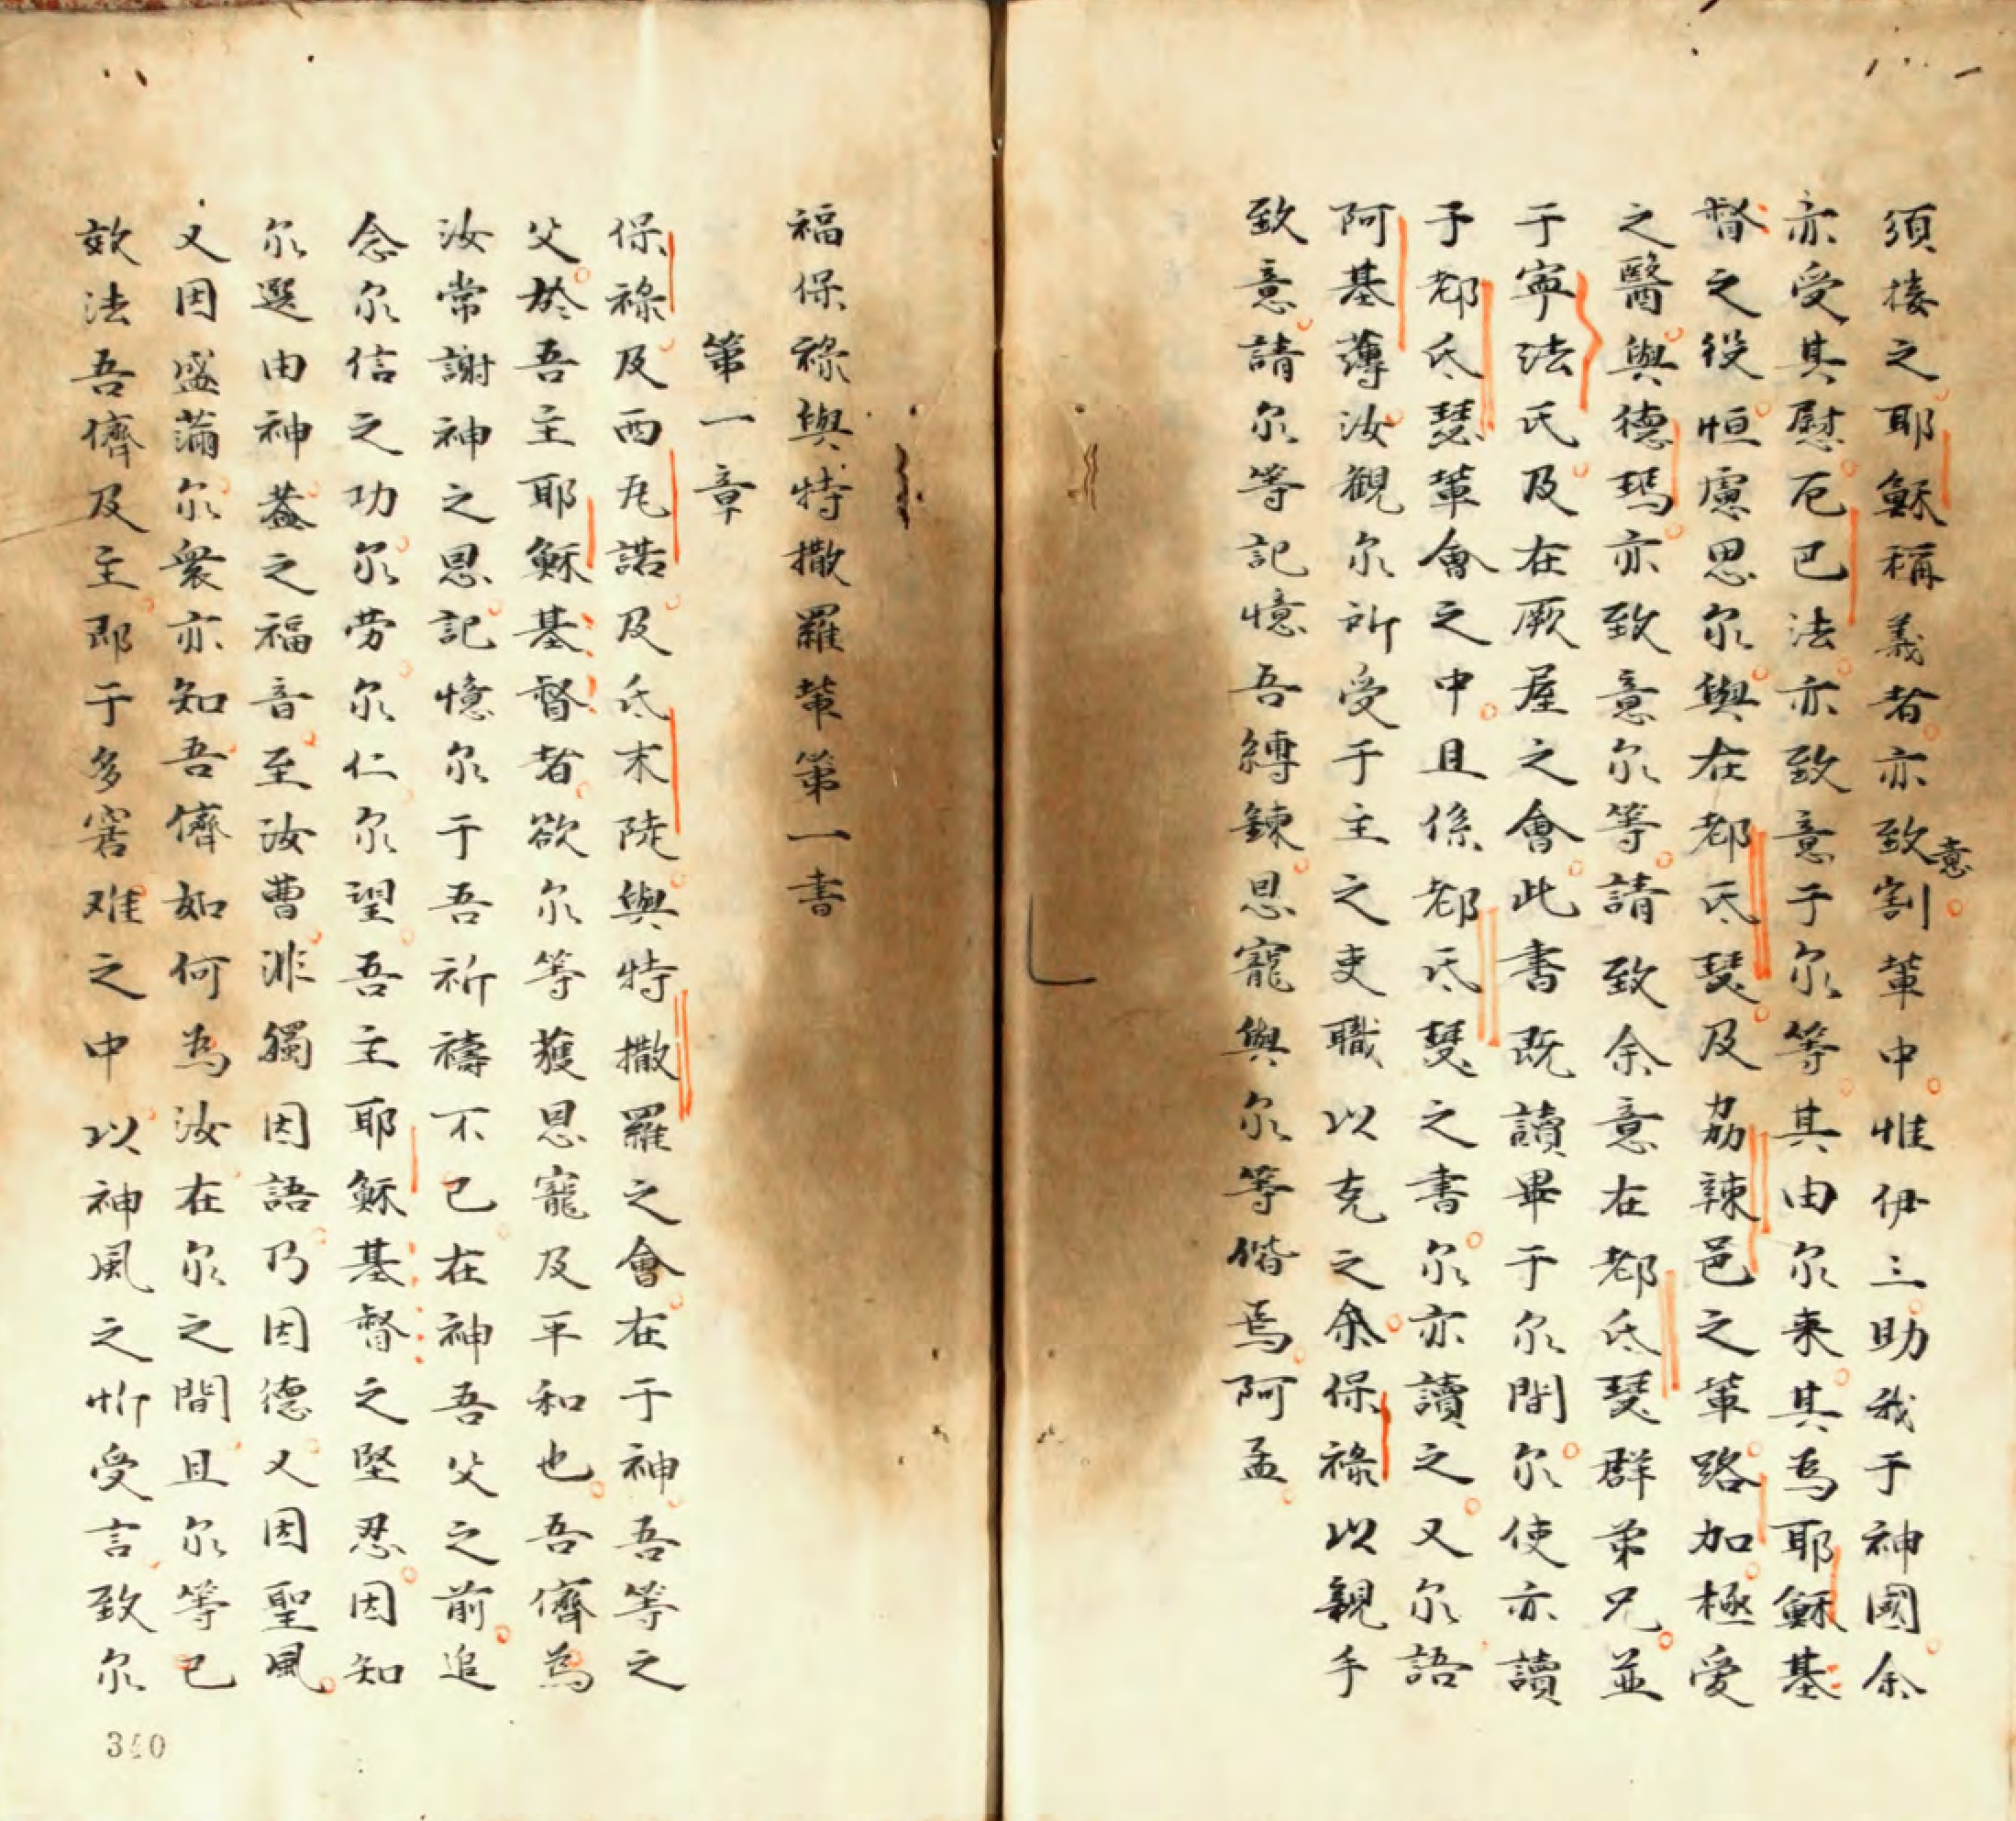 須接之耶穌稱義者亦致意割軰中惟伊三助我于神國余
亦受其慰厄巴法亦致意于尔等其由尔来其為耶穌基
督之役恒慮思尔與在都氐瑟及刕辣邑之軰路加極愛
之醫與德瑪亦致意尔等請致余意在都氐瑟群弟兄並
于寧法氏及在厥屋之會此書既讀畢于尔間尔使亦讀
于都氐瑟軰會之中且係都氐瑟之書尔亦讀之又尔語
阿基薄汝觀尔所受于主之吏職以克之余保祿以親手
致意請尔等記憶吾縛鍊恩寵與尔等偕焉阿孟
福保祿與特撒羅軰第一書
第一章
保祿及西瓦諾及氐末陡與特撒羅之會在于神吾等之
父於吾主耶穌基督者欲尔等獲恩寵及平和也吾儕為
汝常謝神之恩記憶尔于吾祈禱不已在神吾父之前追
念尔信之功尔劳尔仁尔望吾主耶穌基督之堅忍因知
尔選由神葢之福音至汝曹非獨因語乃因德又因聖風
又因盛滿尔衆亦知吾儕如何為汝在尔之間且尔等已
效法吾儕及主即于多窘难之中以神風之忻受言致尔
340